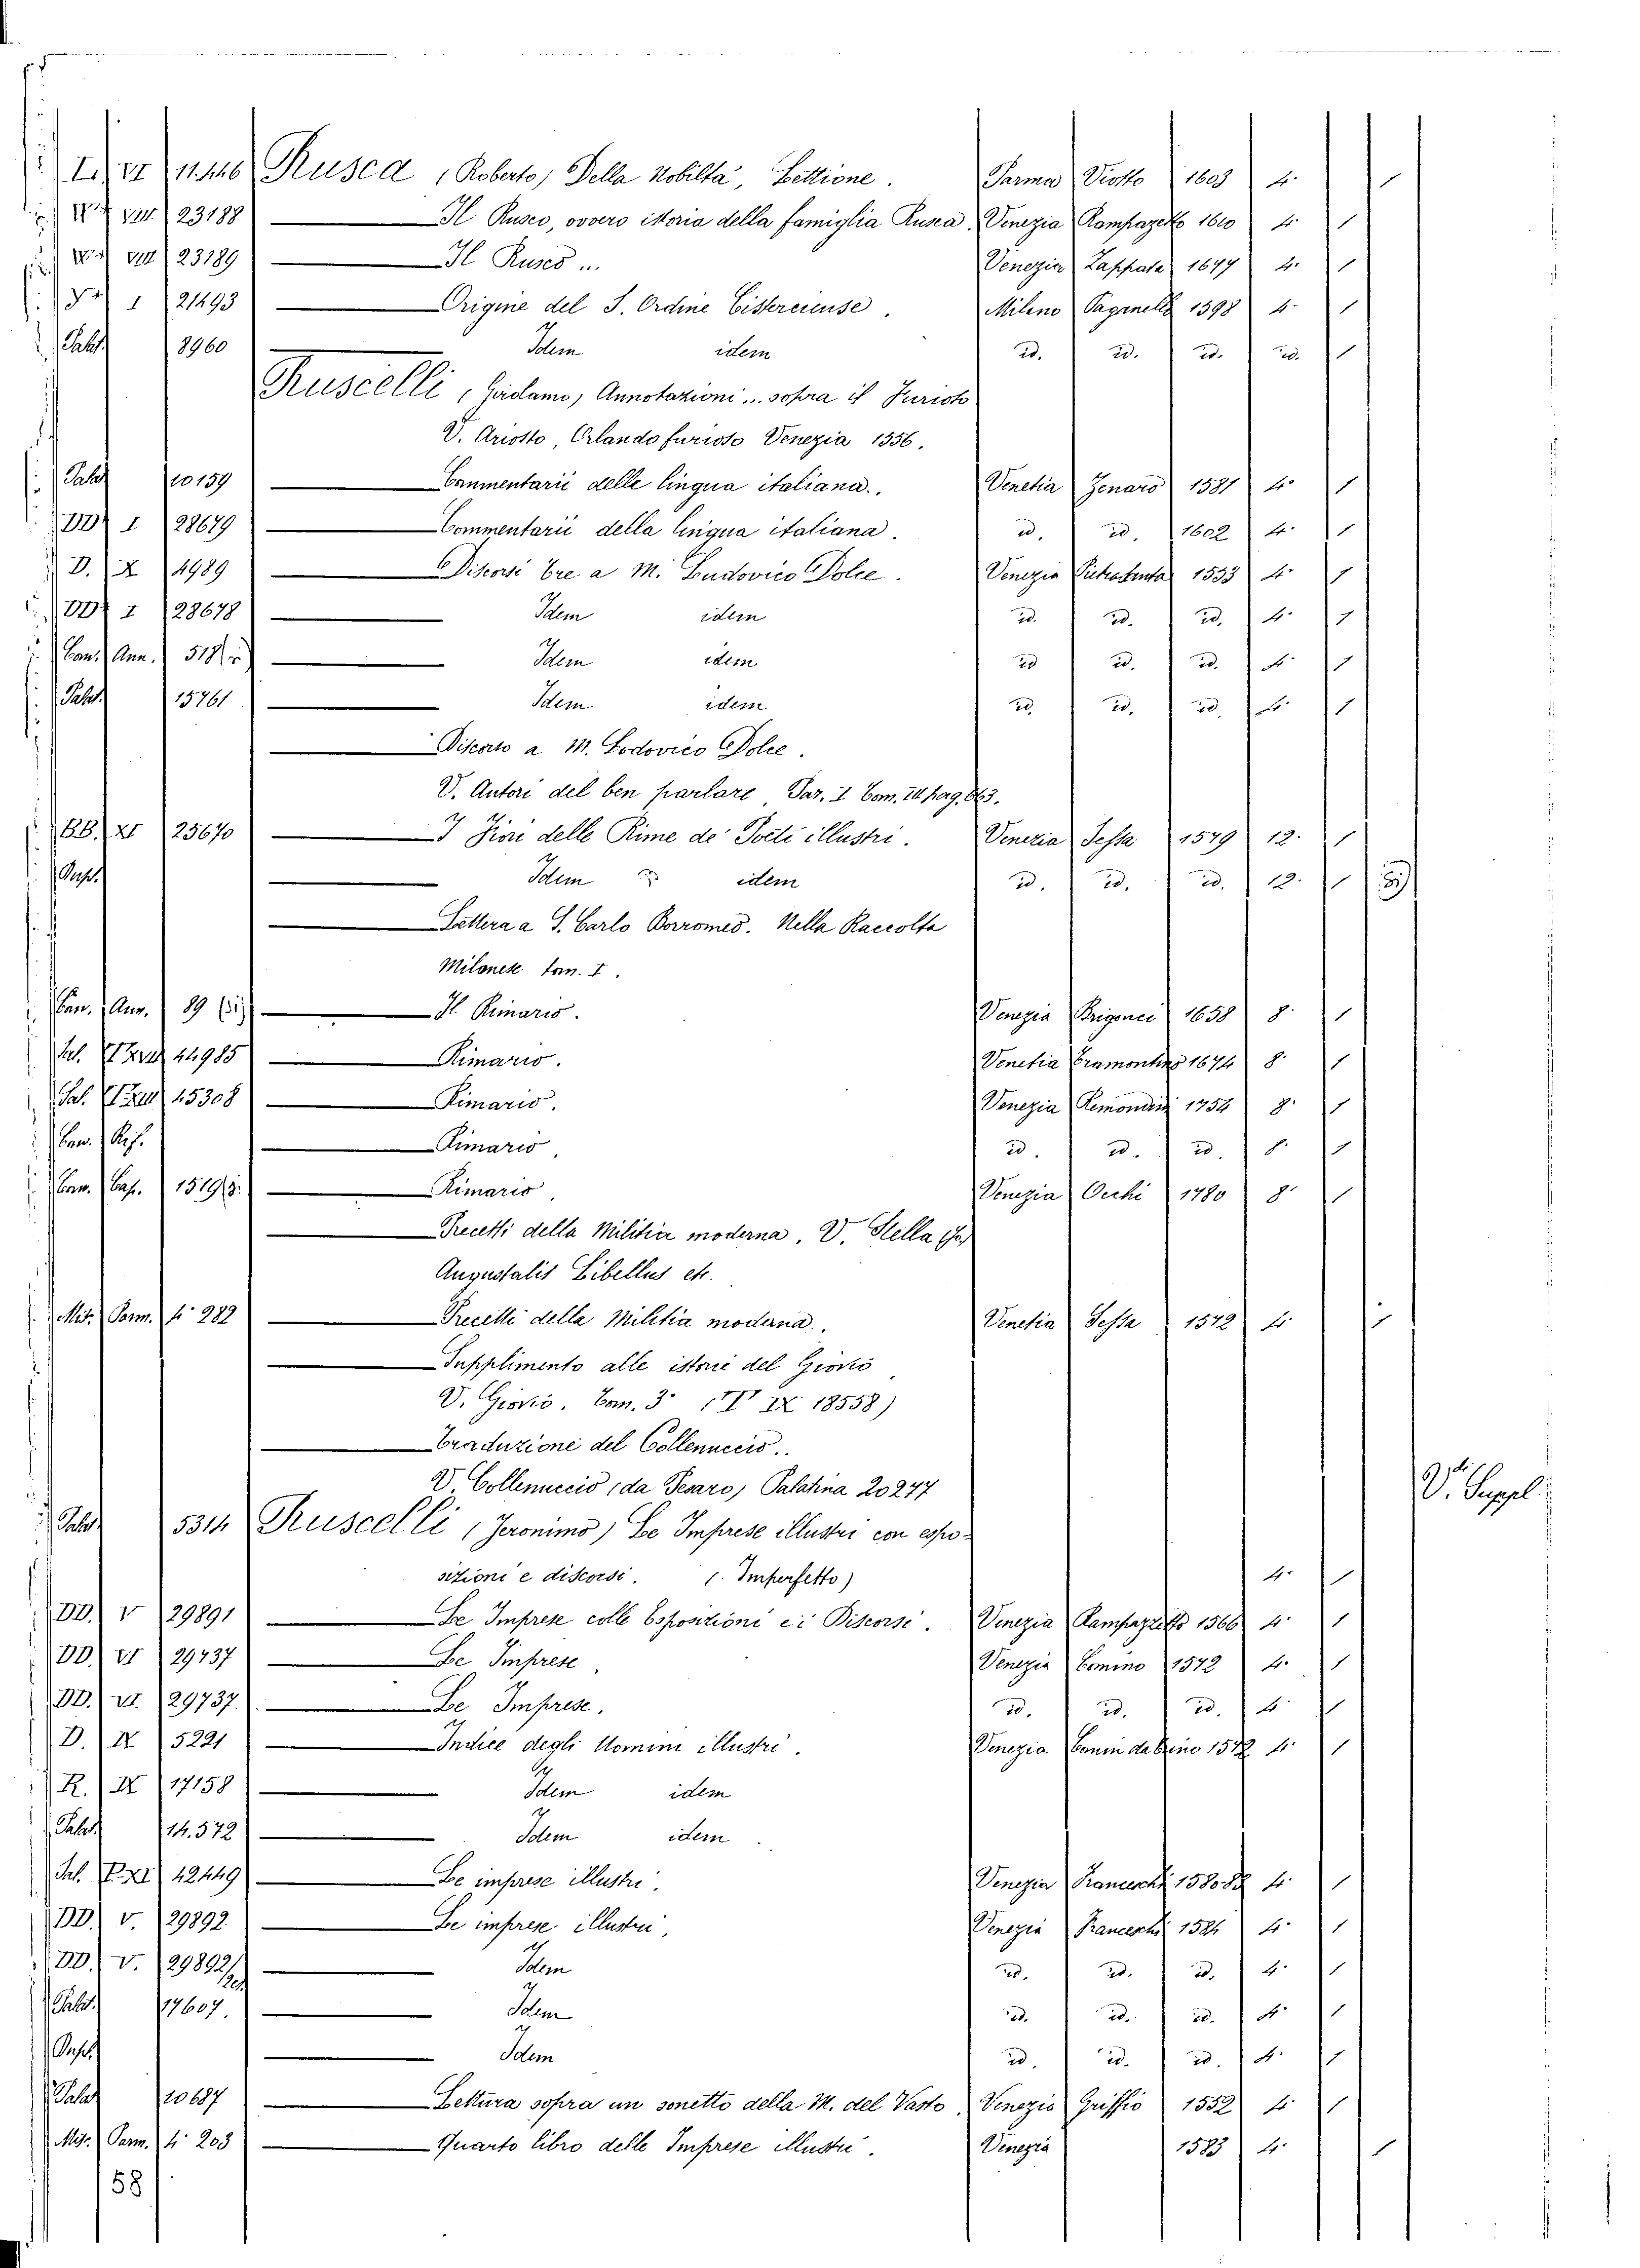 Rusca (Roberto) Della Nobiltà, Lettione. Parma Viotto 1603 4. 1
VIII 23188 Il Rusco, ovvero istoria della famiglia Rusca. Venezia Rampazetto 1610 4. 1
VIII 23189 Il Rusco ... Venezia Zappata 1677 4. 1
I 21493 Origine del S. Ordine Cisterciense. Milano Paganello 1598 4. 1
Palat. 8960 Idem idem id. id. id. id. 1
Ruscelli, (Girolamo) Annotazioni ... sopra il Furioso
V. Ariosto, Orlando furioso Venezia 1556.
Palat. 10159 Commentarii delle lingua italiana. Venetia Zenaro 1581 4. 1
DD. I 28679 Commentarii della lingua italiana. id. id. 1602 4. 1
D. X 4989 Discorsi tre a M. Ludovico Dolce. Venezia Pietrasanta 1553 4. 1
DD. I 28678 Idem idem id. id. id. 4. 1
Con. Ann. 518 Idem idem id id. id. 4. 1
Palat. 15761 Idem idem id. id. id. 4. 1
Discorso a M. Lodovico Dolce.
V. Autori del ben parlare, Par. I Tom. III pag. 663.
BB. XI 25670 I Fiori delle Rime de' Poeti illustri. Venezia Sessa 1579 12. 1
Dupl. Idem idem id. id. id. 12. 1
Lettera a S. Carlo Borromeo. Nella Raccolta
Milanese tom. I.
Con. Ann. 89 Il Rimario. Venezia Brigonci 1658 8. 1
44985 Rimario. Venetia 1674 8. 1
45308 Rimario. Venezia Remondini 1754 8. 1
Rimario. id. id. id. 8. 1
Con. Cap. 1519 Rimario. Venezia Occhi 1780 8. 1
Precetti della Militia moderna. V. Stella
Augustalis Libellus etc.
Mis. Parm. 4° 282 Precetti della Militia moderna. Venetia Sessa 1572 4. 1
Supplimento alle istorie del Giovio
V. Giovio. Tom. 3° IX 18558)
Traduzione del Collenuccio.
V. Collenuccio (da Pesaro) Palatina 20277
V. Suppl.
Palat. 5314 Ruscelli (Jeronimo) Le Imprese illustri con espo-
sitioni e discorsi. (Imperfetto) 4. 1
DD. V 29891 Le Imprese colle Esposizioni ei Discorsi. Venezia Rampazetto 1566 4. 1
DD. VI 29737 Le Imprese. Venezia Comino 1572 4. 1
DD. VI. 29737. Le Imprese. id. id. id. 4. 1
D. 5221 Indice degli Uomini illustri. Venezia Comin da Trino 1572 4. 1
R. IX 17158 Idem idem
Palat. 14.572 Idem idem
42449 Le imprese illustri. Venezia Franceschi 1580 4. 1
DD. V. 29892 Le imprese illustri. Venezia Franceschi 1584 4. 1
DD. V. 29892 Idem id. id. id. 4. 1
Palat. 17607. Idem id. id. id. 4. 1
Dupl. Idem id. id. id. 4. 1
Palat. 10687 Lettura sopra un sonetto della M. del Vasto. Venezia Griffio 1552 4. 1
Mis. Parm. 4° 203 Quarto libro delle Imprese illustri. Venezia 1583 4. 1
58